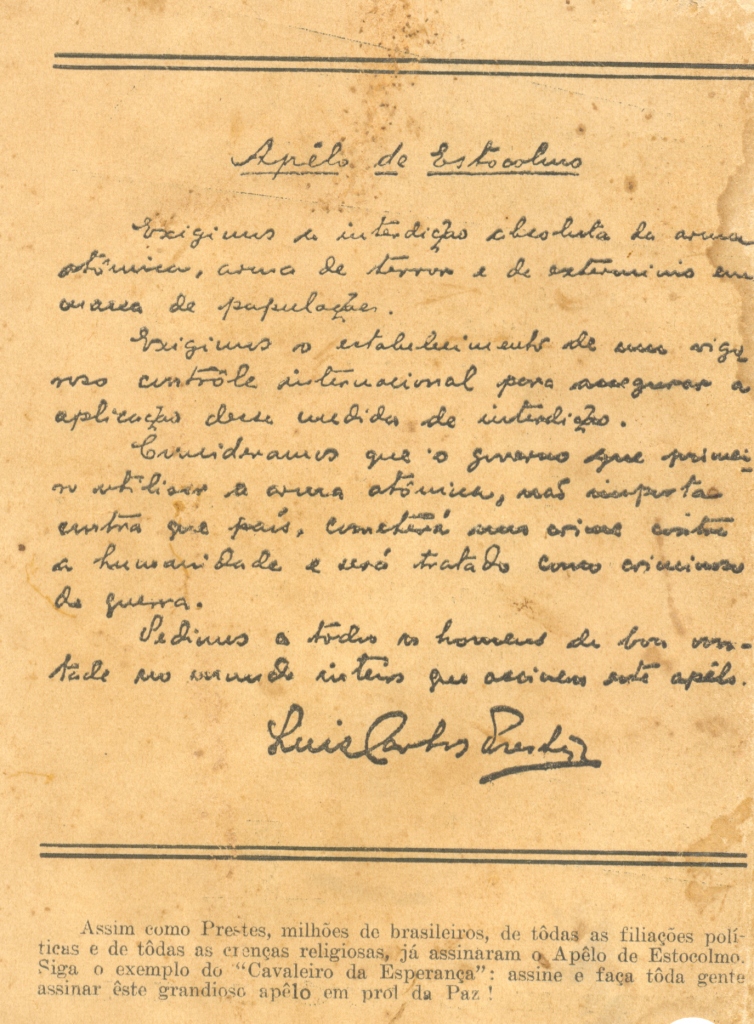 Apêlo de Estocolmo
Exigimos a interdição absoluta da arma
atômica, arma de terror e de exterminio em
massa de populações.
Exigimos o estabelecimento de um rigo
roso contrôle internacional para assegurar a
aplicação dessa medida de interdição.
Consideramos que o governo que primei-
ro utilisar a arma atômica, não importa
contra que país, cometerá um crime contra
a humanidade e será tratado como criminoso
de guerra.
Pedimos a todos os homens de boa von-
tade no mundo inteiro que assinem este apêlo.
Luis Carlos Prestes
Assim como Prestes, milhões de brasileiros, de tôdas as filiações polí-
ticas e de tôdas as crenças religiosas, já assinaram o Apêlo de Estocolmo.
Siga o exemplo do "Cavaleiro da Esperança": assine e faça tôda gente
assinar êste grandioso apêlo em prol da Paz !